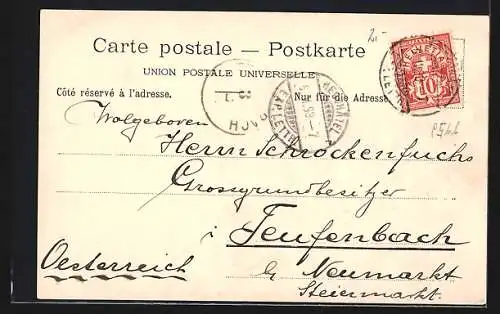 2.-
Carte postale — Postkarte
UNION POSTALE UNIVERSELLE
Côté réservé à l'adresse. Nur für die Adresse
HELVETIA
10
NEUCHATEL
Wolgeboren
Herrn Schrockenfuchs
Grossgrundbesitzer
i Teufenbach
Oesterreich b/ Neumarkt
Steiermarkt.